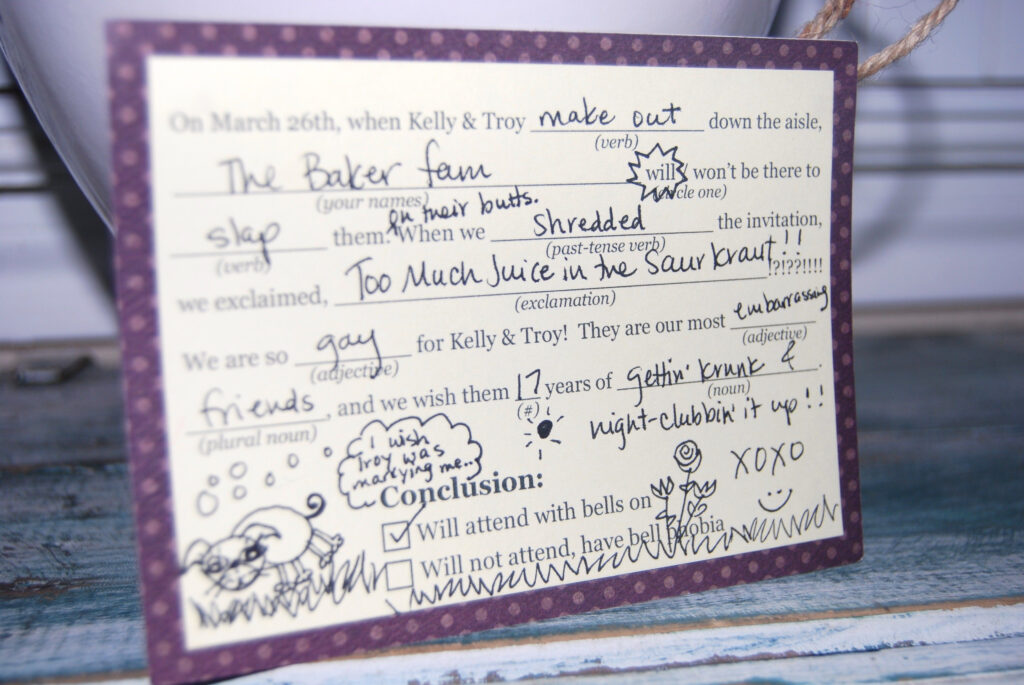 On March 26th, when Kelly & Troy make out down the aisle,
(verb)
The Baker fam will won't be there to
(your names) (circle one)
on their butts.
slap them. When we Shredded the invitation,
(verb) (past-tense verb)
we exclaimed, Too Much Juice in the Saurkraut!! !?!??!!!!
(exclamation)
We are so gay for Kelly & Troy! They are our most embarrassing
(adjective) (adjective)
friends, and we wish them 17 years of gettin' krunk &
(plural noun) (#) (noun)
night-clubbin' it up!!
I wish
Troy was
marrying me..
XOXO
Conclusion:
Will attend with bells on
Will not attend, have bell phobia